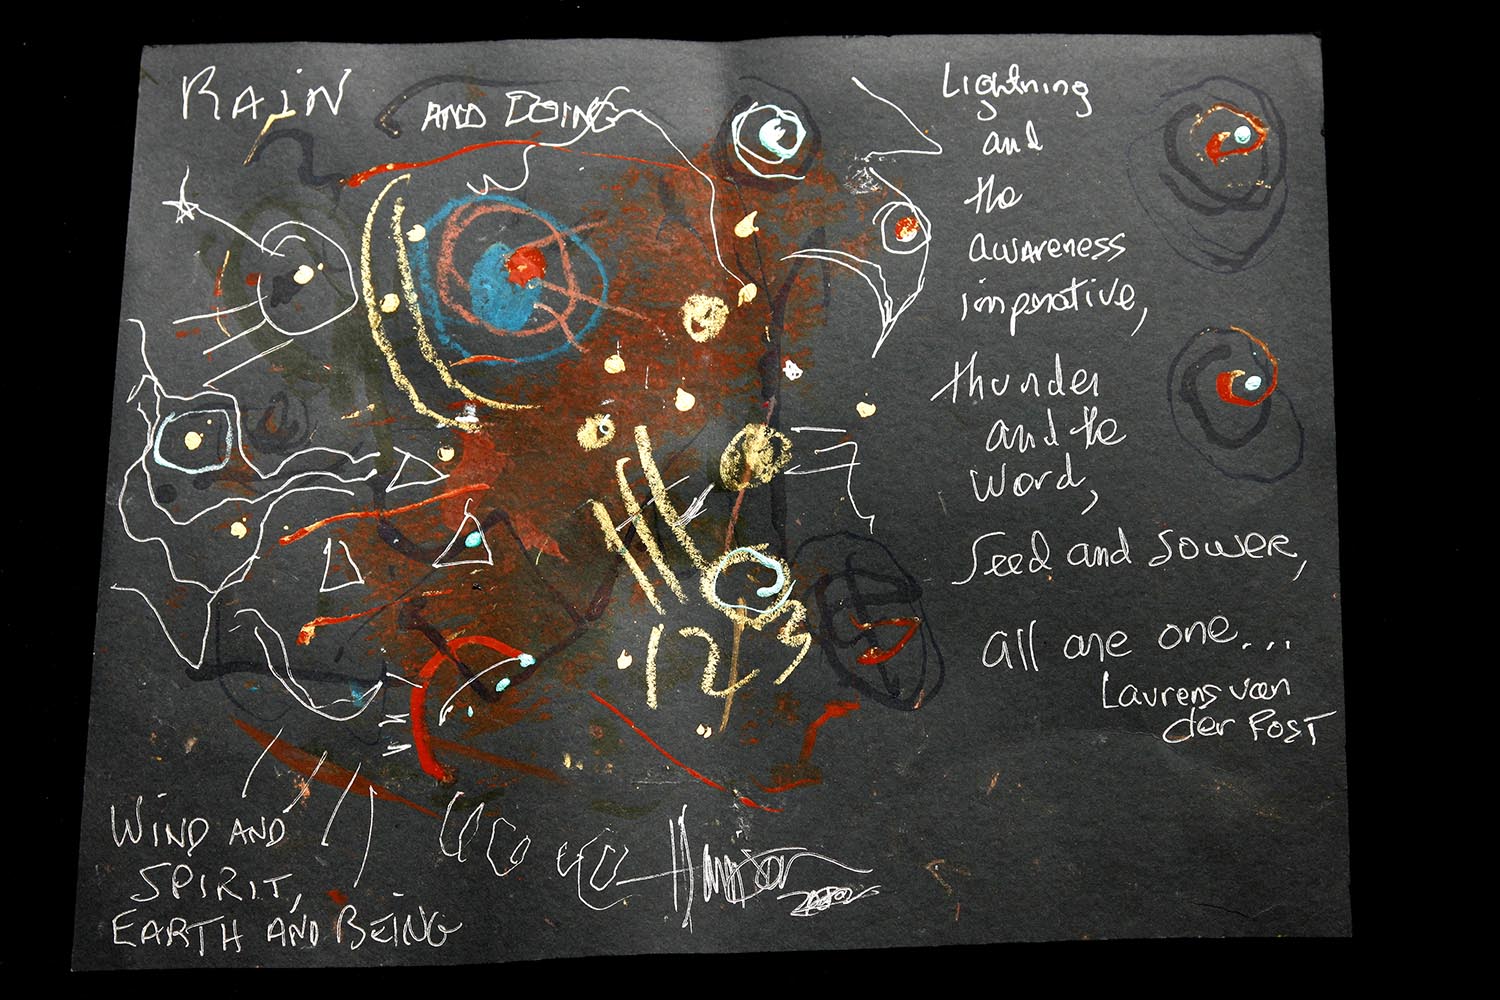 RAIN AND DOING
Lightning
and
the
awareness
imperative,
thunder
and the
word,
Seed and sower,
all are one...
Laurens van
der Post
123
WIND AND
SPIRIT,
EARTH AND BEING